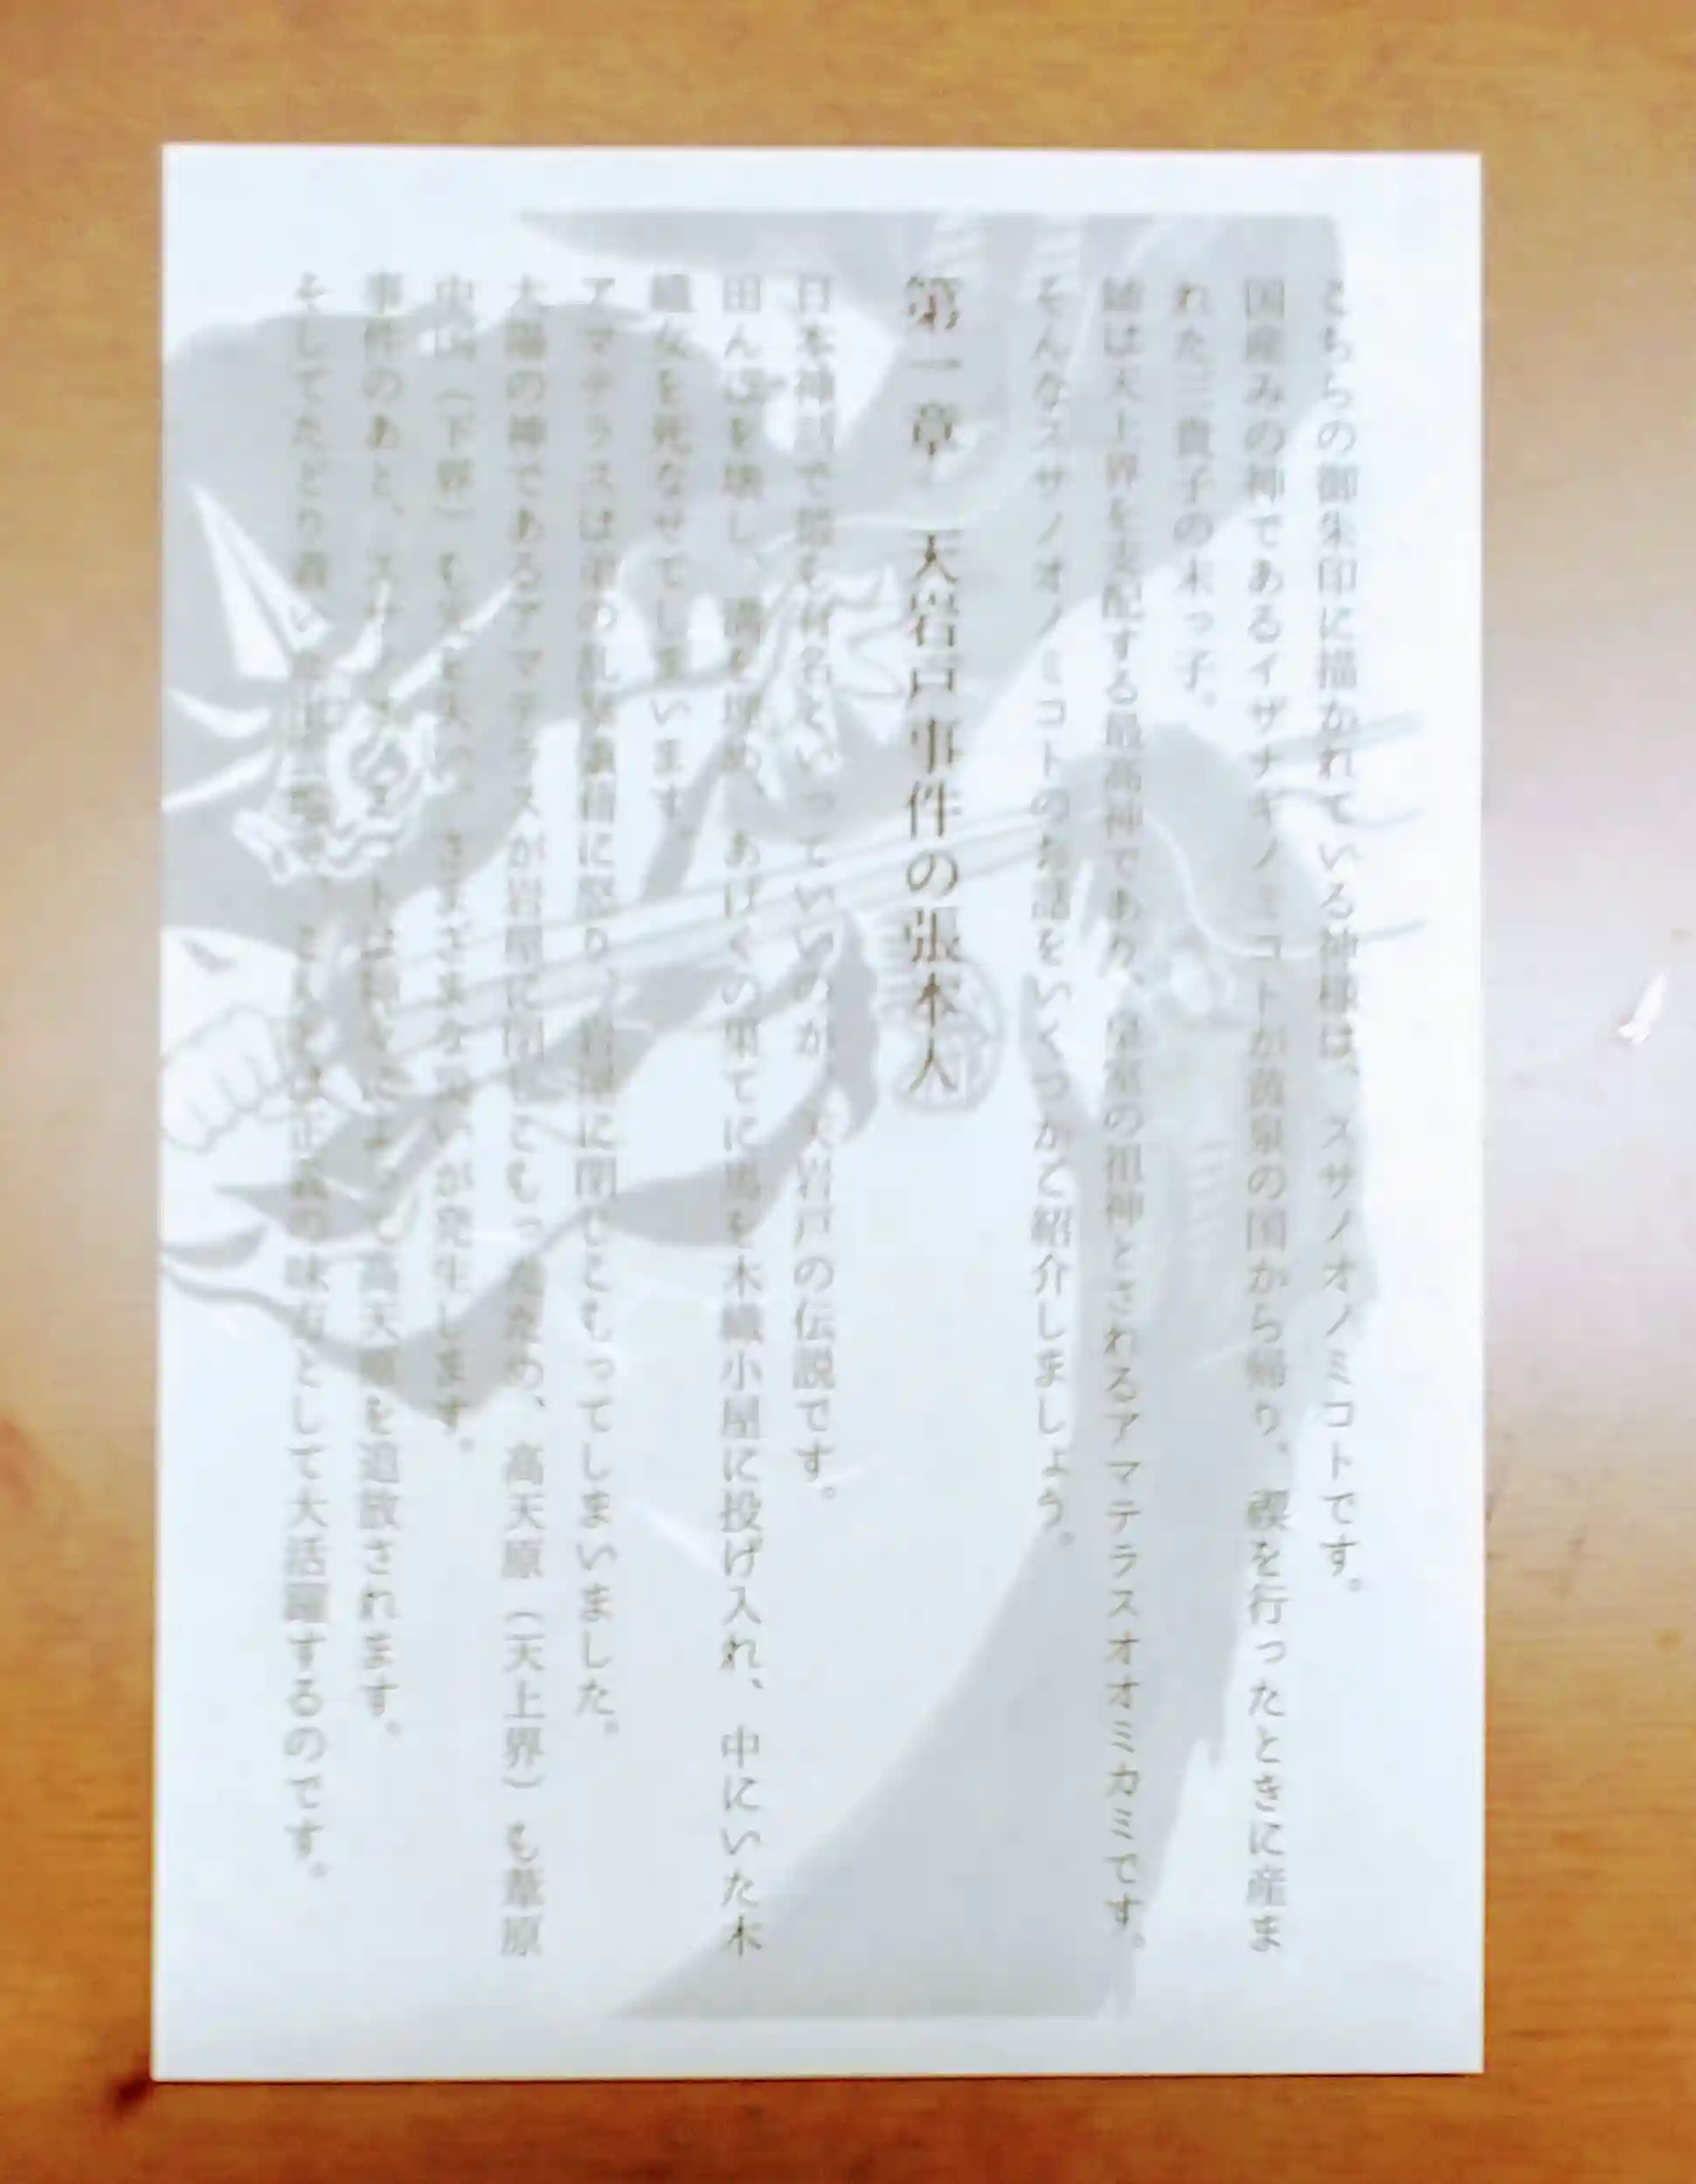 こちらの御朱印に描かれている神様は、スサノオノミコトです。
国産みの神であるイザナギノミコトが黄泉の国から帰り、禊を行ったときに産ま
れた三貴子の末っ子。
姉は天上界を支配する最高神であり、皇室の祖神とされるアマテラスオオミカミです。
そんなスサノオノミコトの神話をいくつかご紹介しましょう。
第一章 天岩戸事件の張本人
日本神話で最も有名といっていいのが、天岩戸の伝説です。
田んぼを壊し、溝を埋め、あげくの果てに馬を木織小屋に投げ入れ、中にいた木
織女を死なせてしまいます。
アマテラスは弟の乱暴狼藉に怒り、岩屋に閉じこもってしまいました。
太陽の神であるアマテラスが岩屋に閉じこもったため、高天原（天上界）も葦原
中国（下界）も光を失い、さまざまな災いが発生します。
事件のあと、スサノオノミコトは神々によって高天原を追放されます。
そしてたどり着いた出雲では正義の味方として大活躍するのです。